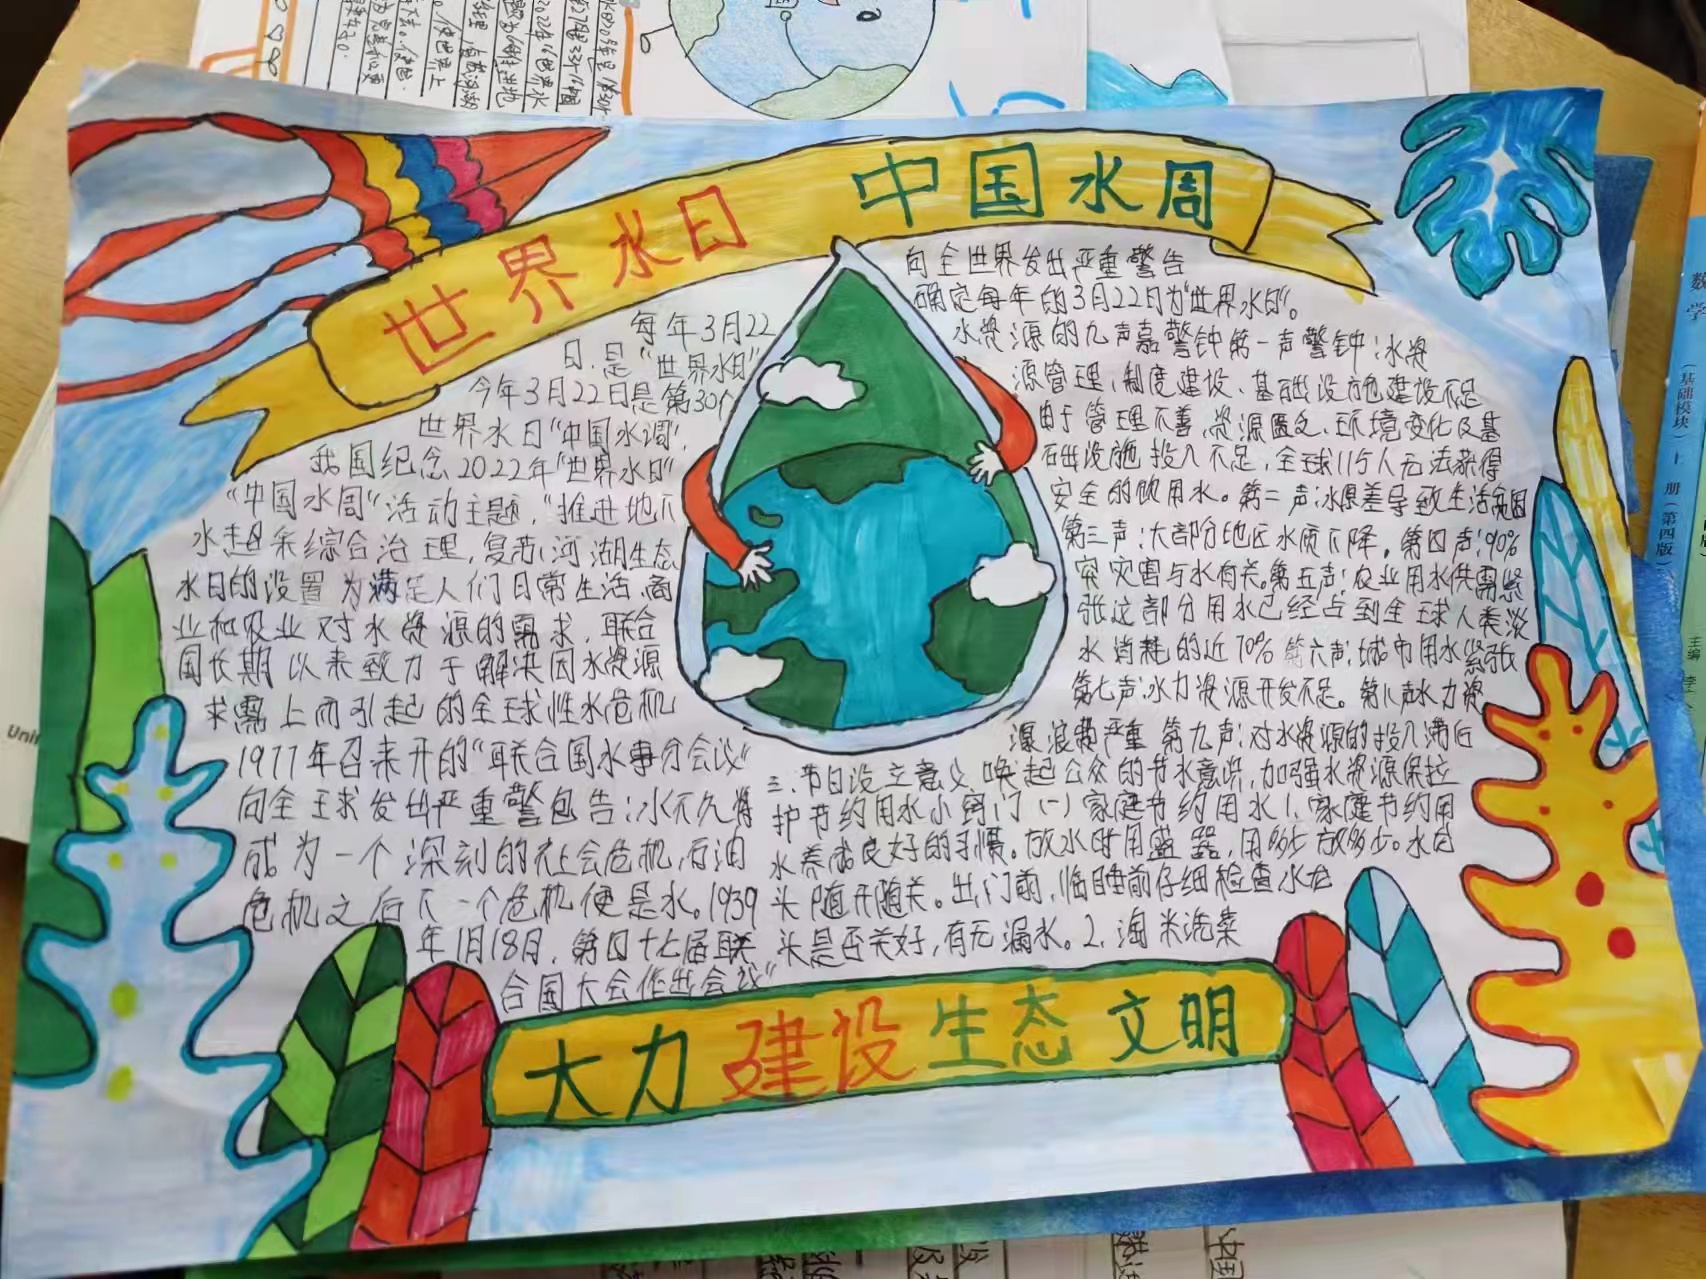 世界水日 中国水周
每年3月22
日，是"世界水日"
今年3月22日是第30个
世界水日"中国水调"，
我国纪念2022年"世界水日"
"中国水周"活动主题，"推进地下
水超采综合治理，复苏河湖生态
水日的设置为满足人们日常生活，商
业和农业对水资源的需求，联合
国长期以来致力于解决因水资源
求需上而引起的全球性水危机
1977年召来开的"联合国水事分会议"
向全球发出严重警包告：水不久将
成为一个深刻的社会危机，石油
危机之后下一个危机便是水。1939
年1月18月，第四十七届联
合国大会作出会议"
向全世界发出严重警告
确定每年的3月22日为"世界水日"。
水资源的九声嘉警钟第一声警钟：水资
源管理，制度建设、基础设施建设不足
由于管理不善，资源匮乏、环境变化及基
础设施投入不足，全球1/5人无法获得
安全的饮用水。第二声：水原差导致生活贫困
第三声：大部分地区水质下降。第四声：90%
灾害与水有关。第五声：农业用水供需紧
张这部分用水已经占到全球人类淡
水消耗的近70% 第六声：城市用水紧张
第七声：水力资源开发不足。第八声水力资
源浪费严重 第九声：对水资源的投入滞后
三、节日设立意义 唤起公众的节水意识，加强水资源保拉
护节约用水小窍门（一）家庭节约用水1、家庭节约用
水养成良好的习惯。放水时用盛器，用多少放多少。水龙
头随开随关。出门前，临睡前仔细检查水龙
头是否关好，有无漏水。2、淘米洗菜
大力建设生态文明
数学
（基础模块）
上册（第四版）
主编 李
Unir
中国